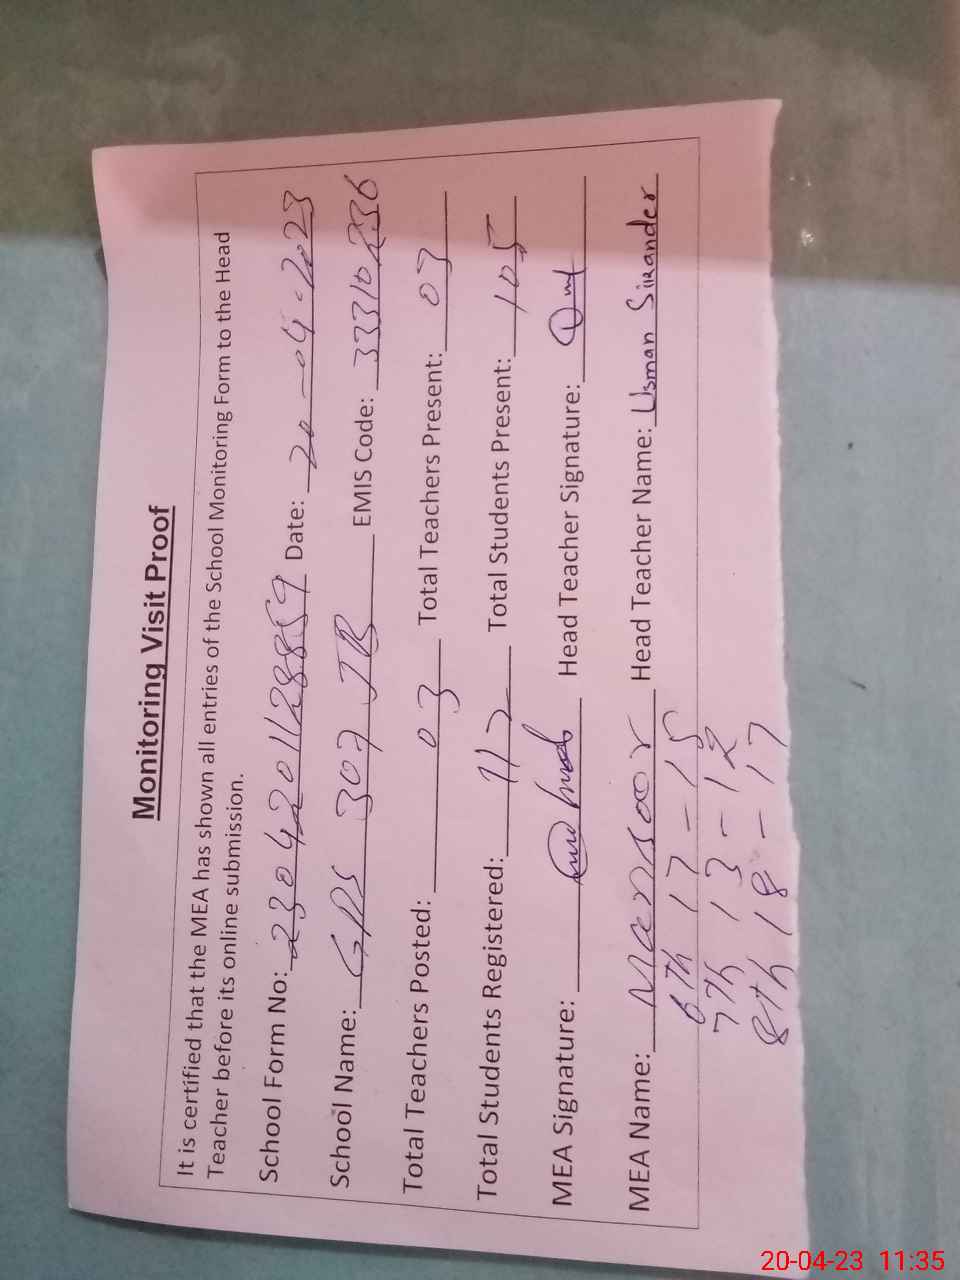 Monitoring Visit Proof
It is certified that the MEA has shown all entries of the School Monitoring Form to the Head
Teacher before its online submission.
School Form No: 2304201128859 Date: 20-04-2023
School Name: GPS 307 JB EMIS Code: 33310236
Total Teachers Posted: 03 Total Teachers Present: 03
Total Students Registered: 112 Total Students Present: 105
MEA Signature: Head Teacher Signature:
MEA Name: Mansoor Head Teacher Name: Usman Sikander
6th 17 - 15
7th 13 - 12
8th 18 - 17
20-04-23 11:35